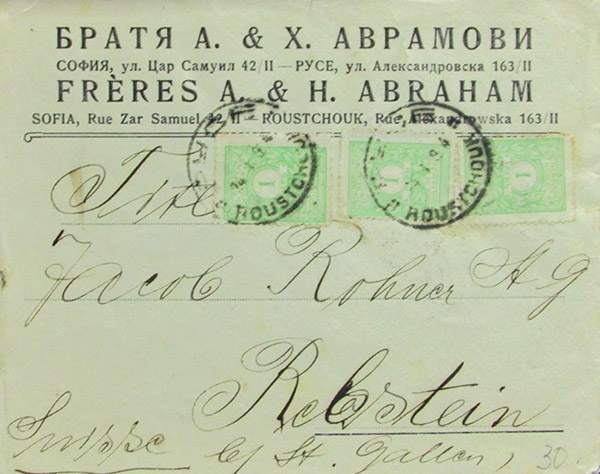 БРАТЯ А. & Х. АВРАМОВИ
СОФИЯ, ул. Цар Самуил 42/II — РУСЕ, ул. Александровска 163/II
FRÈRES A. & H. ABRAHAM
SOFIA, Rue Zar Samuel 42/II - ROUSTCHOUK, Rue Alexandrowska 163/II
1 1 1
ROUSTCHOUK ROUSTCHOUK
Titl
Jacob Rohner A G
Rebstein
Suisse b/ St. Gallen,
30.